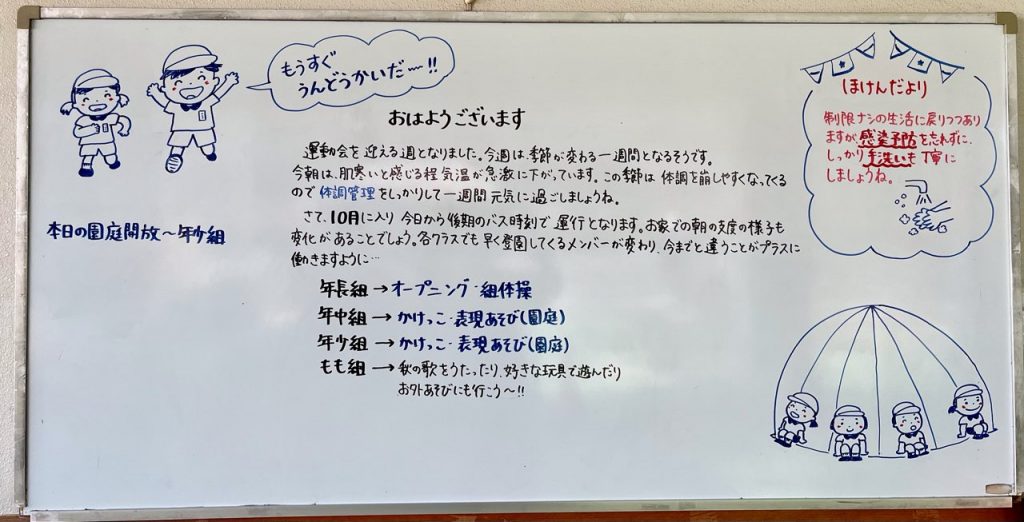 もうすぐ
うんどうかいだ〜!!
おはようございます
運動会を迎える週となりました。今週は、季節が変わる一週間となるそうです。
今朝は、肌寒いと感じる程気温が急激に下がっています。この季節は体調を崩しやすくなってくる
ので体調管理をしっかりして一週間元気に過ごしましょうね。
さて、10月に入り今日から後期のバス時刻で運行となります。お家での朝の支度の様子も
変化があることでしょう。各クラスでも早く登園してくるメンバーが変わり、今までと違うことがプラスに
働きますように…
本日の園庭開放〜年少組
年長組→オープニング・組体操
年中組→かけっこ・表現あそび(園庭)
年少組→かけっこ・表現あそび(園庭)
もも組→秋の歌をうたったり、好きな玩具で遊んだり
お外あそびにも行こう〜!!
ほけんだより
制限ナシの生活に戻りつつあり
ますが感染予防を忘れずに、
しっかり手洗いも丁寧に
しましょうね。